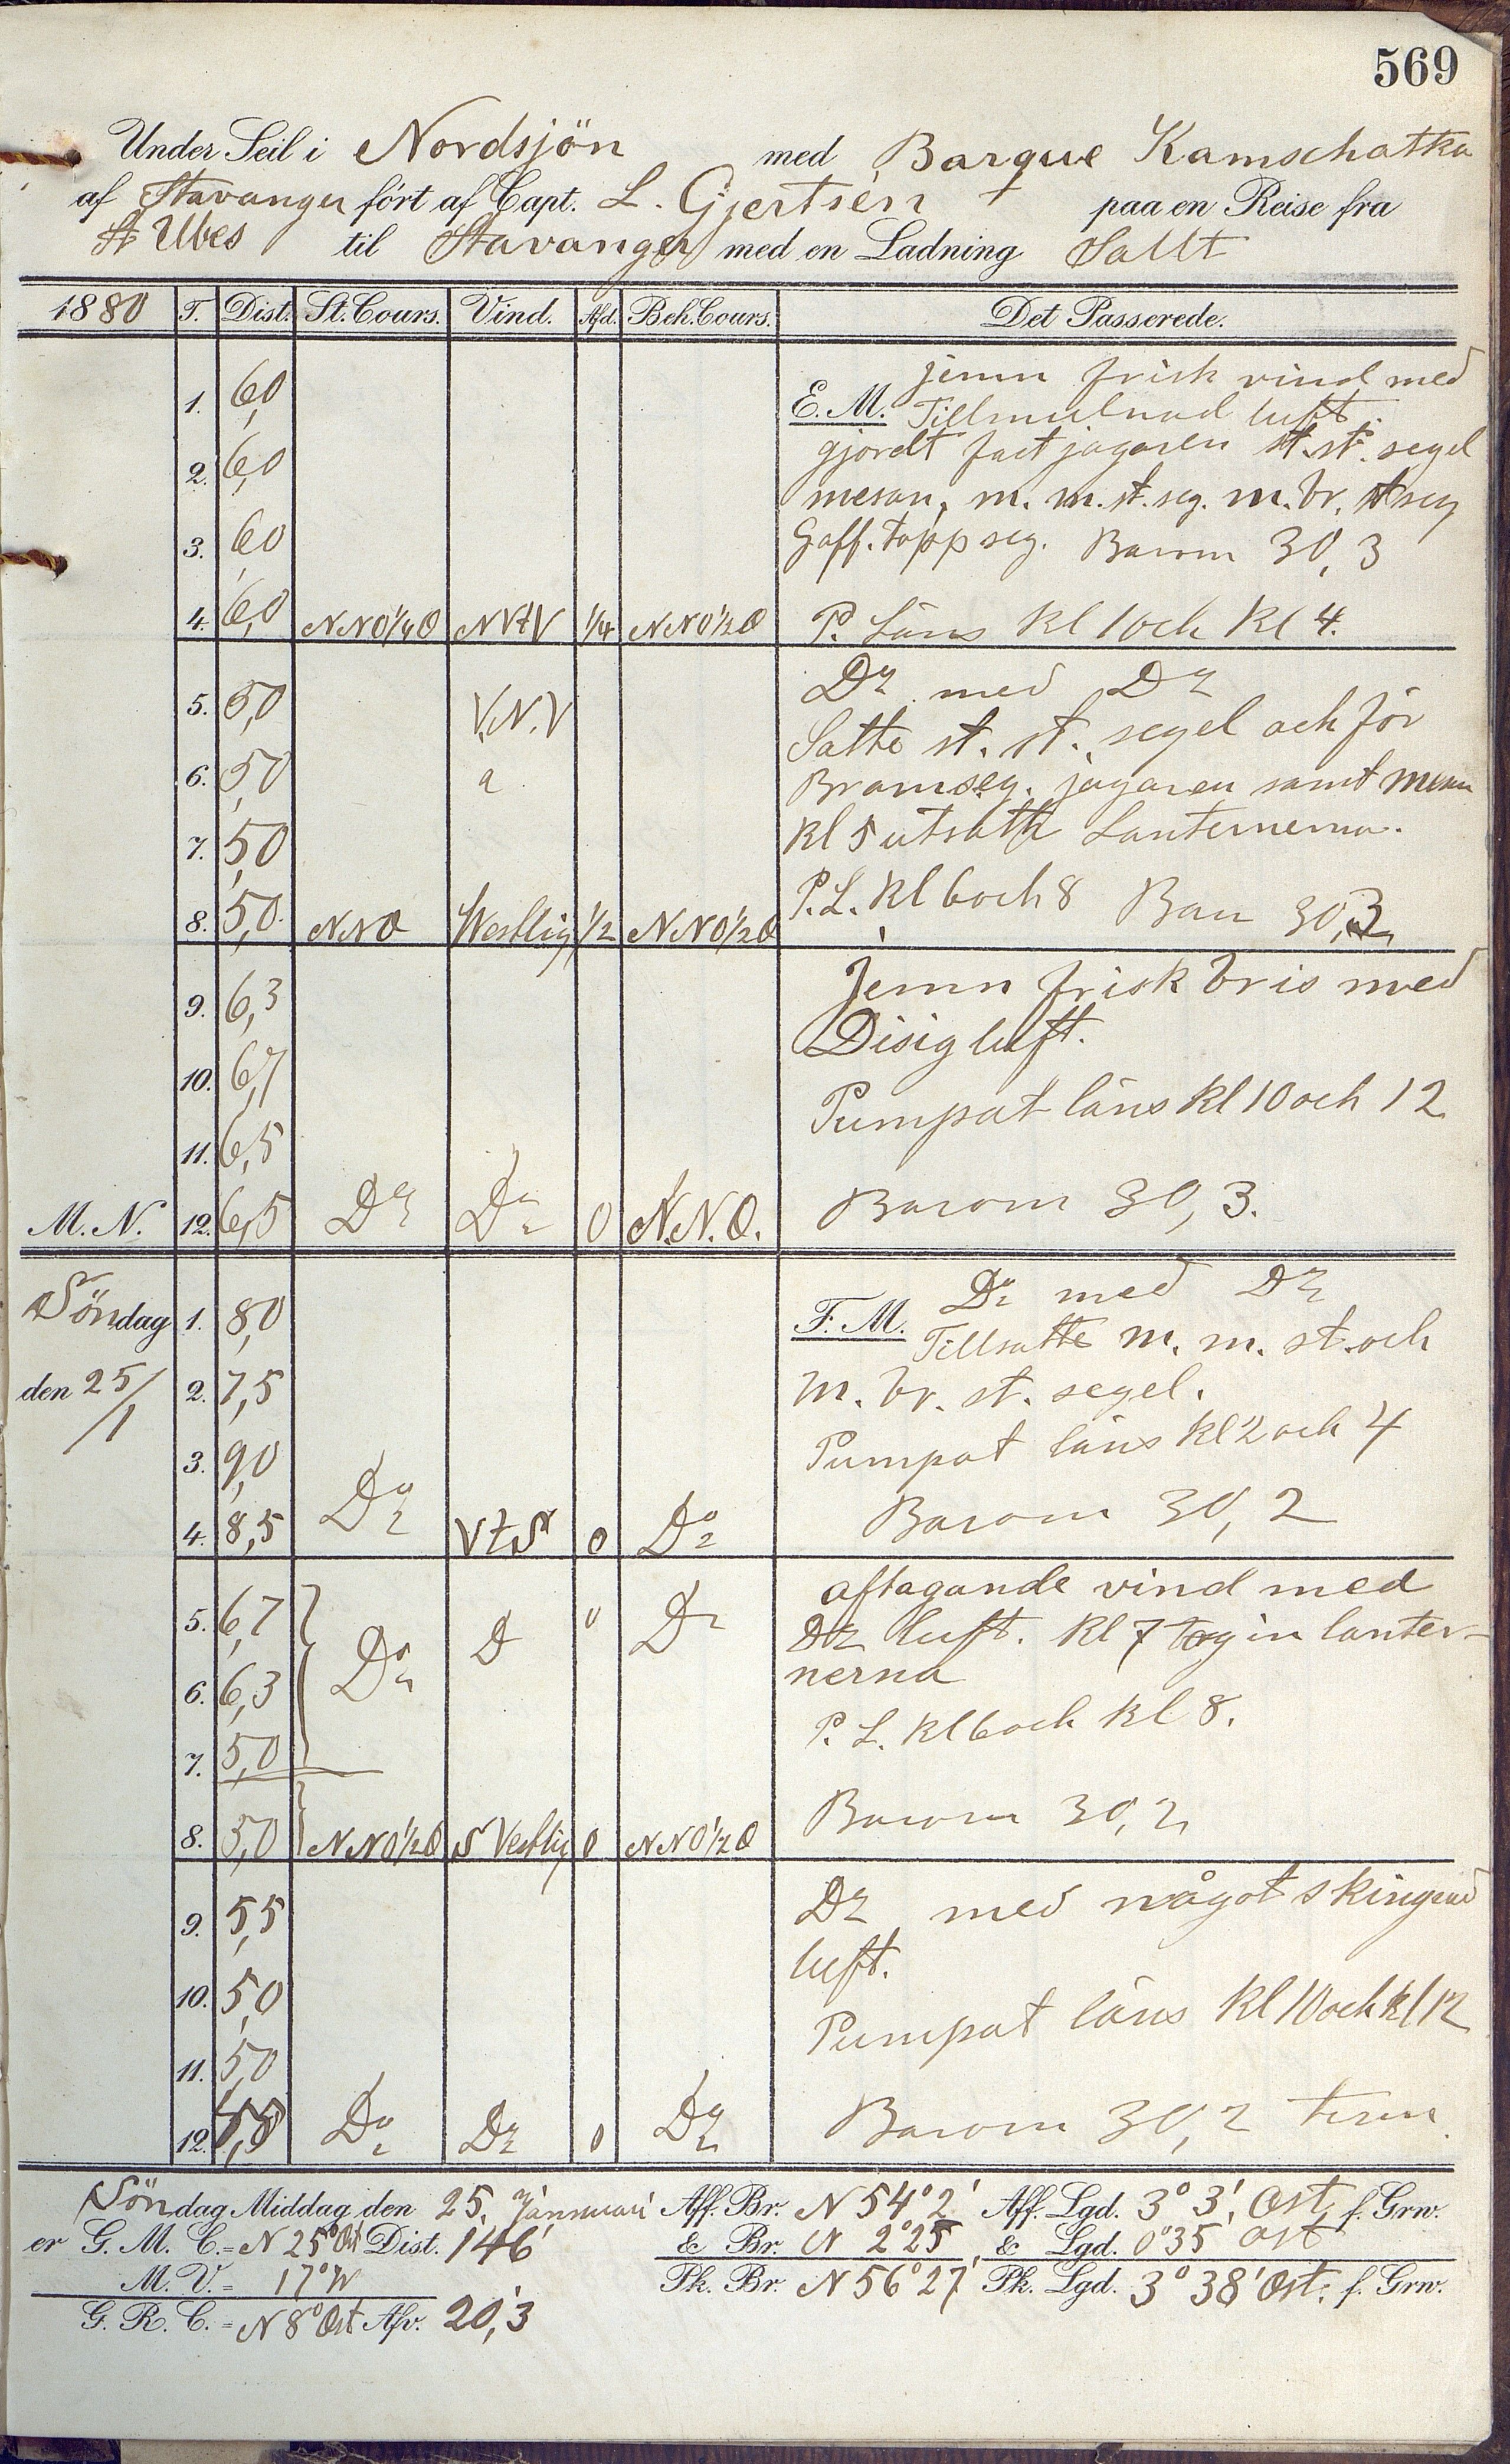 569
Under Seil i Nordsjön med Barque Kamschatka
af Stavanger fört af Capt. L. Gjertsen paa en Reise fra
St Ubes til Stavanger med en Ladning Sallt
1880 T. Dist. St. Cours. Vind. Afd. Beh. Cours. Det Passerede.
jemn frisk vind med
1. 6,0 E. M. Tillmulnad luft.
gjordt fast jagaren st. st. segel
2. 6,0
mesan, m. m. st. seg. m. br. st seg
3. 6,0 Gaff. topp seg. Barom 30,3
4. 6,0 NNO1/4O NVtV 1/4 NNO1/2O P. Läns Kl 1 och Kl 4.
Do med Do
5. 5,0 V.N.V Satte st. st. segel och för
6. 5,0 Bramseg. jagaren samt mesan
7. 5,0 Kl 5 utsatte Lanternerna.
8. 5,0 NNO Westlig 1/2 NNO1/2O P. L. Kl 6 och 8 Bar 30,3
Jemn frisk bris med
9. 6,3 Disig luft.
10. 6,7
Pumpat läns Kl 10 och 12
11. 6,5
M. N. 12. 6,5 Do Do 0 N.N.O. Barom 30,3.
Do med Do
Söndag 1. 8,0 F. M. Tillsatte m. m. st. och
den 25/1 2. 7,5 m. br. st. segel.
3. 9,0 Pumpat läns Kl 2 och 4
4. 8,5 Do VtS 0 Do Barom 30,2
aftagande vind med
5. 6,7 Do D 0 Do Do luft. Kl 7 tog in lanter-
6. 6,3 nerna
P. L. Kl 6 och Kl 8.
7. 5,0
8. 5,0 NNO1/2O S Vestlig 0 NNO1/2O Barom 30,2
9. 5,5 Do med något skingrad
luft.
10. 5,0
Pumpat läns Kl 10 och kl 12
11. 5,0
12. Do Do 0 Do Barom 30,2
Söndag Middag den 25. Januari Aff. Br. N 54°2' Aff. Lgd. 3° 3' Ost, f. Grw.
er G. M. C. = N 25° Ost Dist. 146' & Br. N 2°25' & Lgd. 0°35' Ost
M. V. = 17° W Pk. Br. N 56°27' Pk. Lgd. 3° 38' Ost. f. Grw.
G. R. C. = N 8° Ost Afv. 20,3